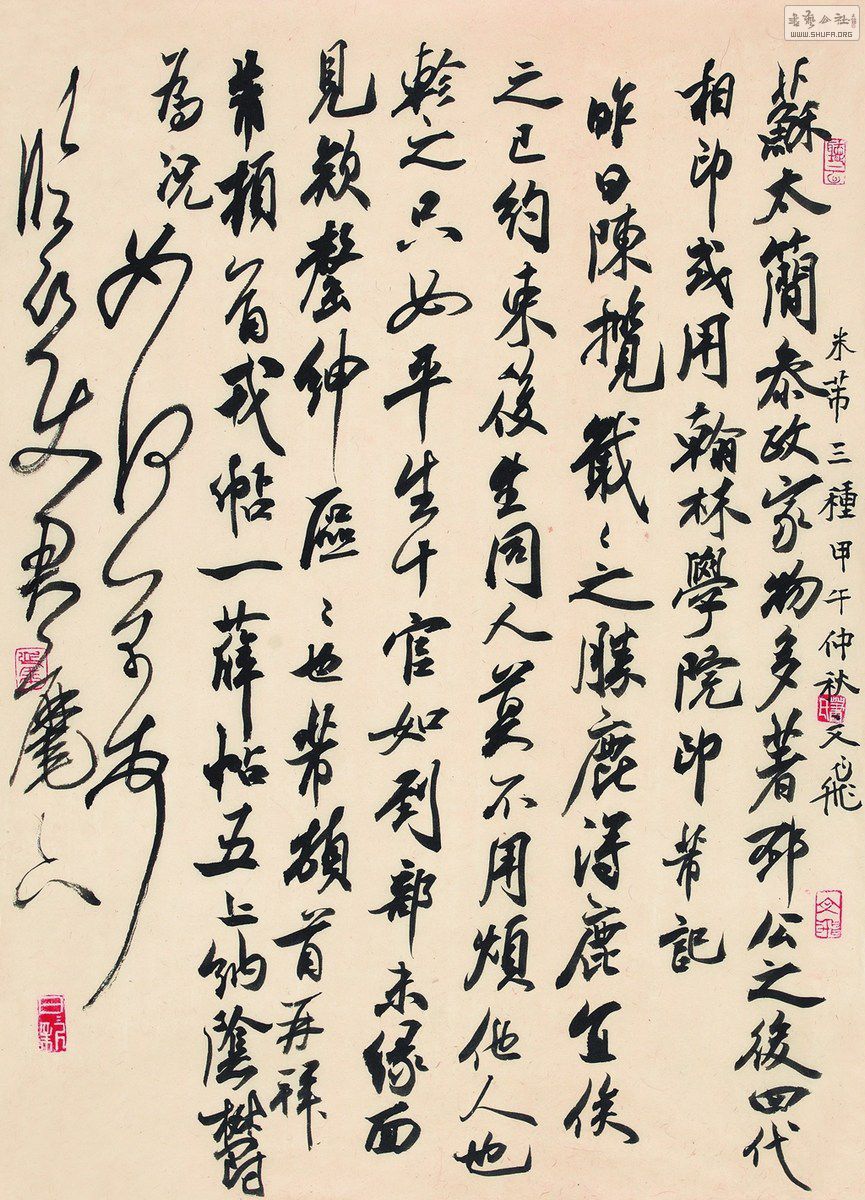 蘇太簡參政家物多著邳公之後四代
相印或用翰林學院印芾記
昨日陳攬戢戢之勝鹿得鹿宜俟
之已約束後生同人莫不用煩他人也
軫之只如平生十官如到部未緣面
見欽罄紳區區也芾頓首再拜
芾頓首戎帖一薛帖五上納陰鬱
為況如何芾頓首
臨收使君麾下
米芾三種甲午仲秋文飛
書藝公社
WWW.SHUFA.ORG